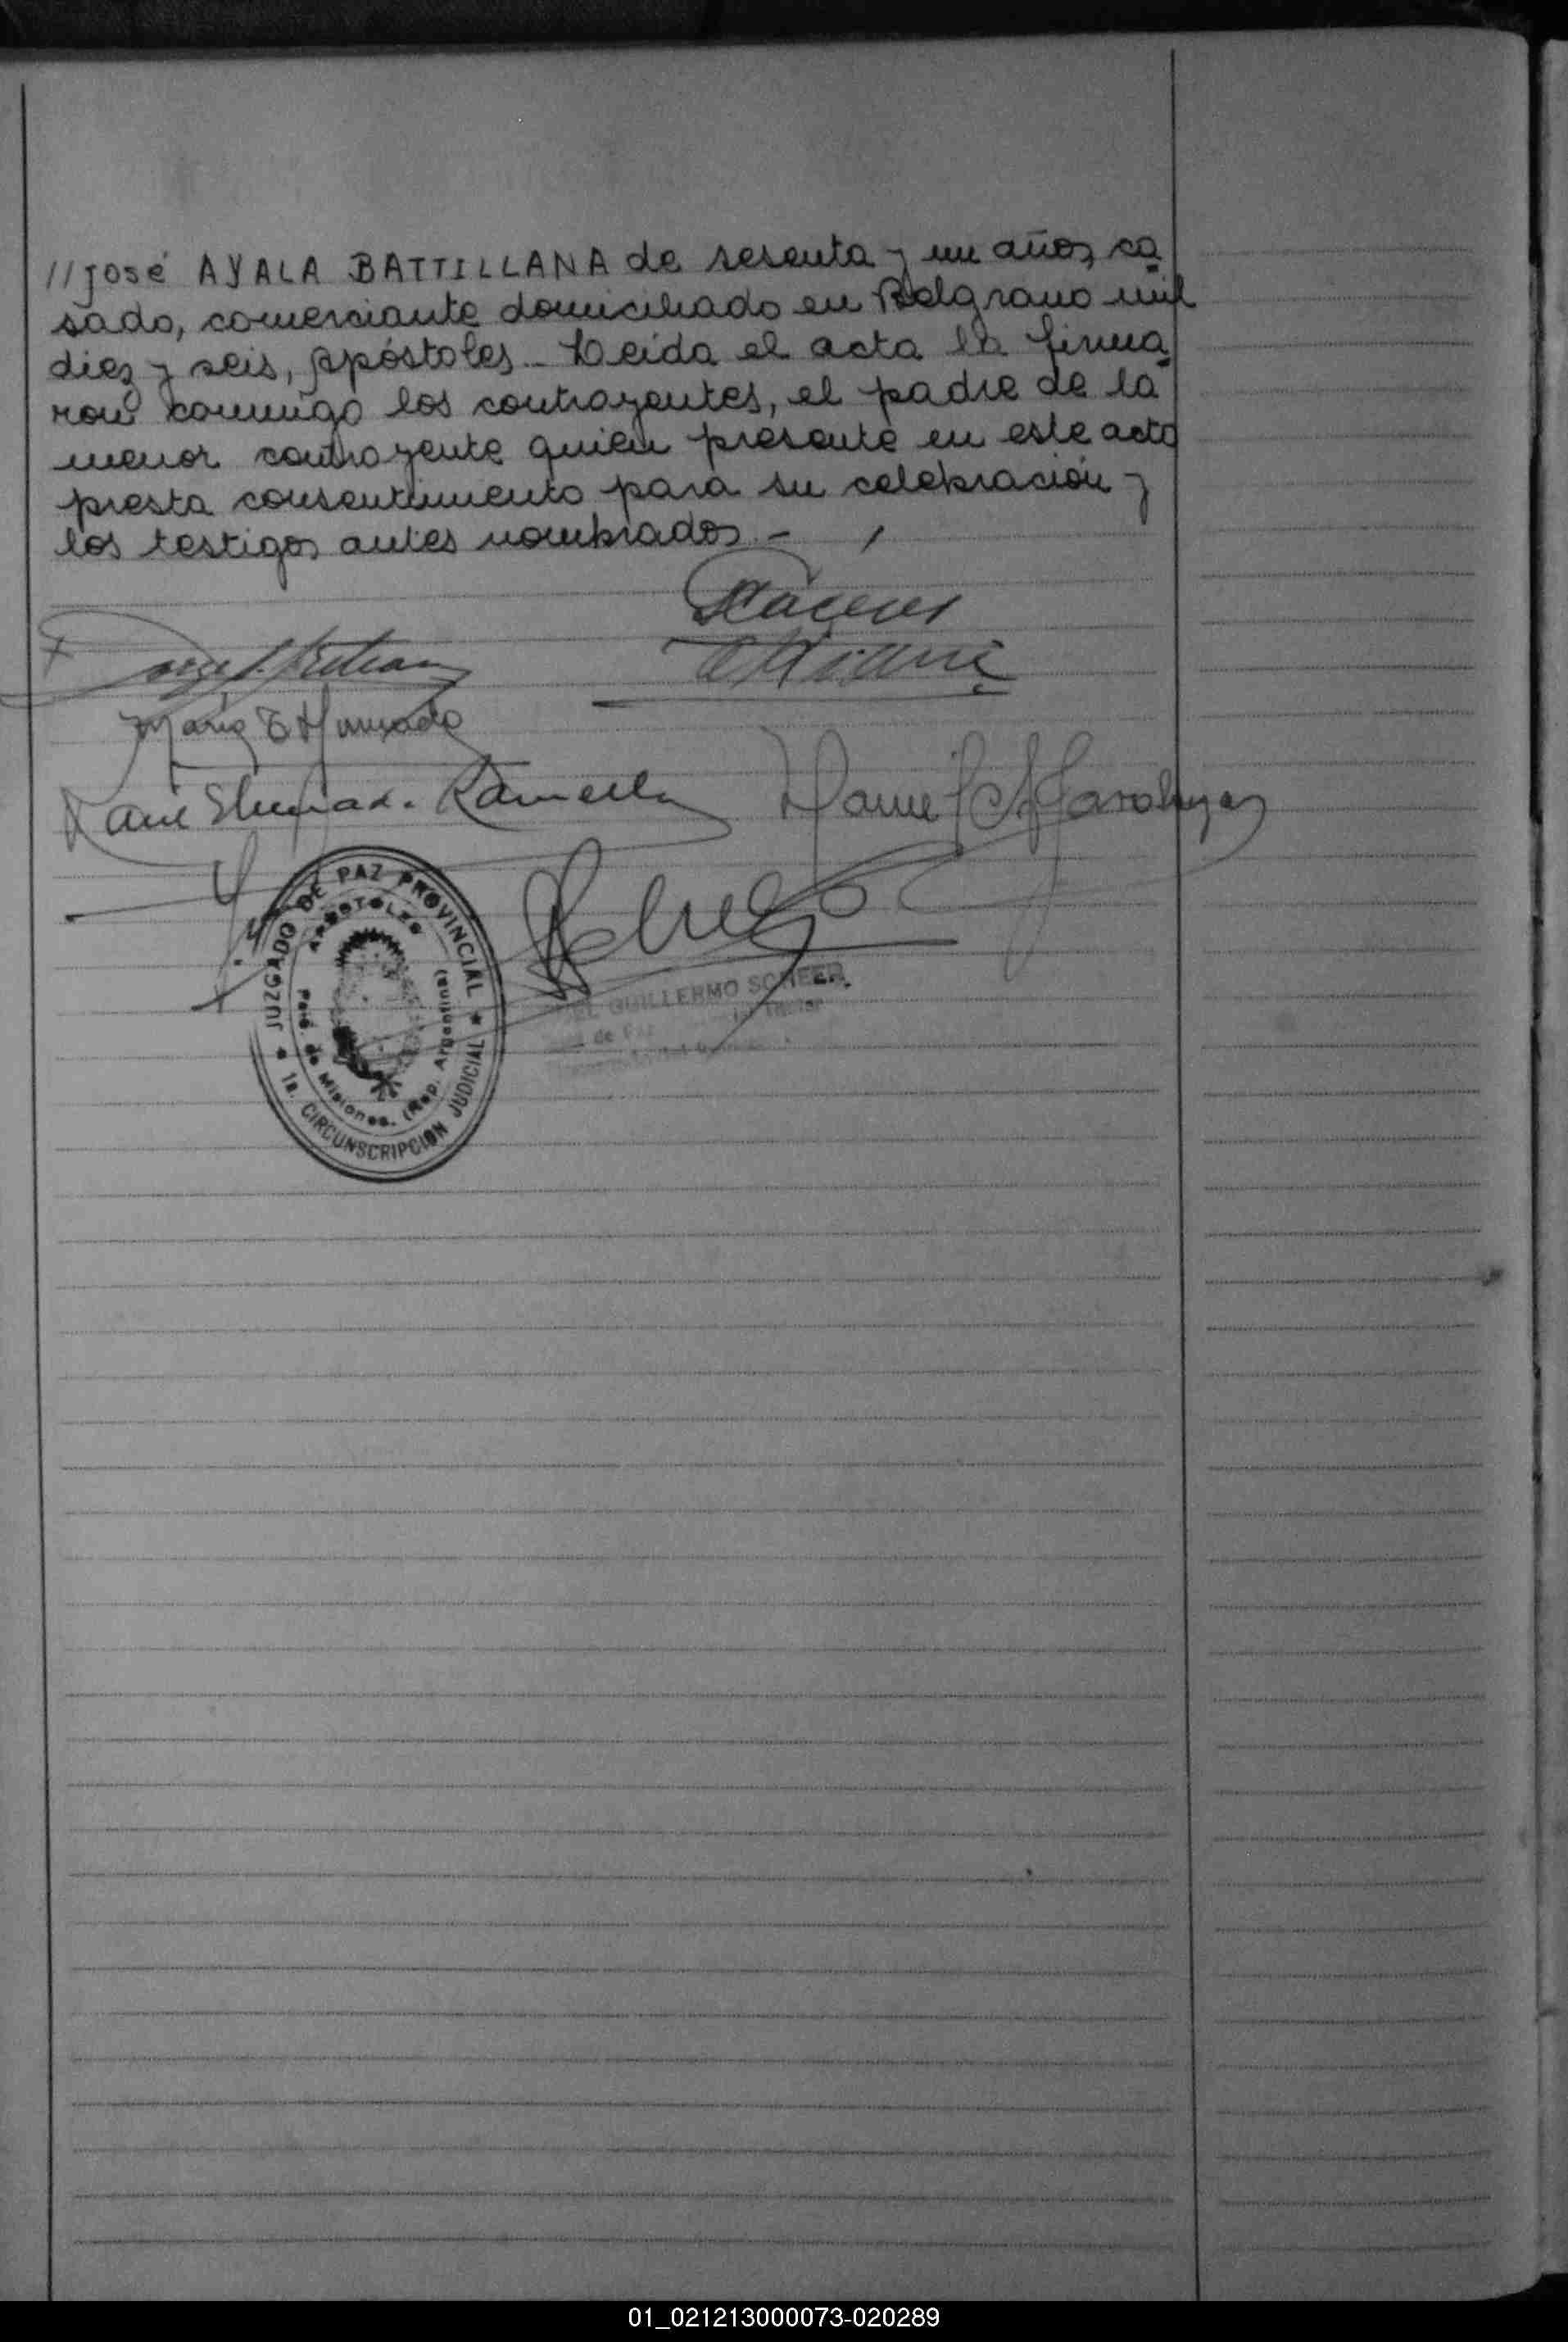 //José AYALA BATTILLANA de sesenta y un años, ca
sado, comerciante domiciliado en Belgrano mil
diez y seis, Apóstoles.- Leída el acta la firma
ron conmigo los contrayentes, el padre de la
menor contrayente quien presente en este acto
presta consentimiento para su celebración y
los testigos antes nombrados.-
Cáceres
María E
JUZGADO DE PAZ PROVINCIAL
APOSTOLES
Pcia. de Misiones. (Rep. Argentina)
1a. CIRCUNSCRIPCION JUDICIAL
GUILLERMO SCHEER
de Paz Titular
01_021213000073-020289